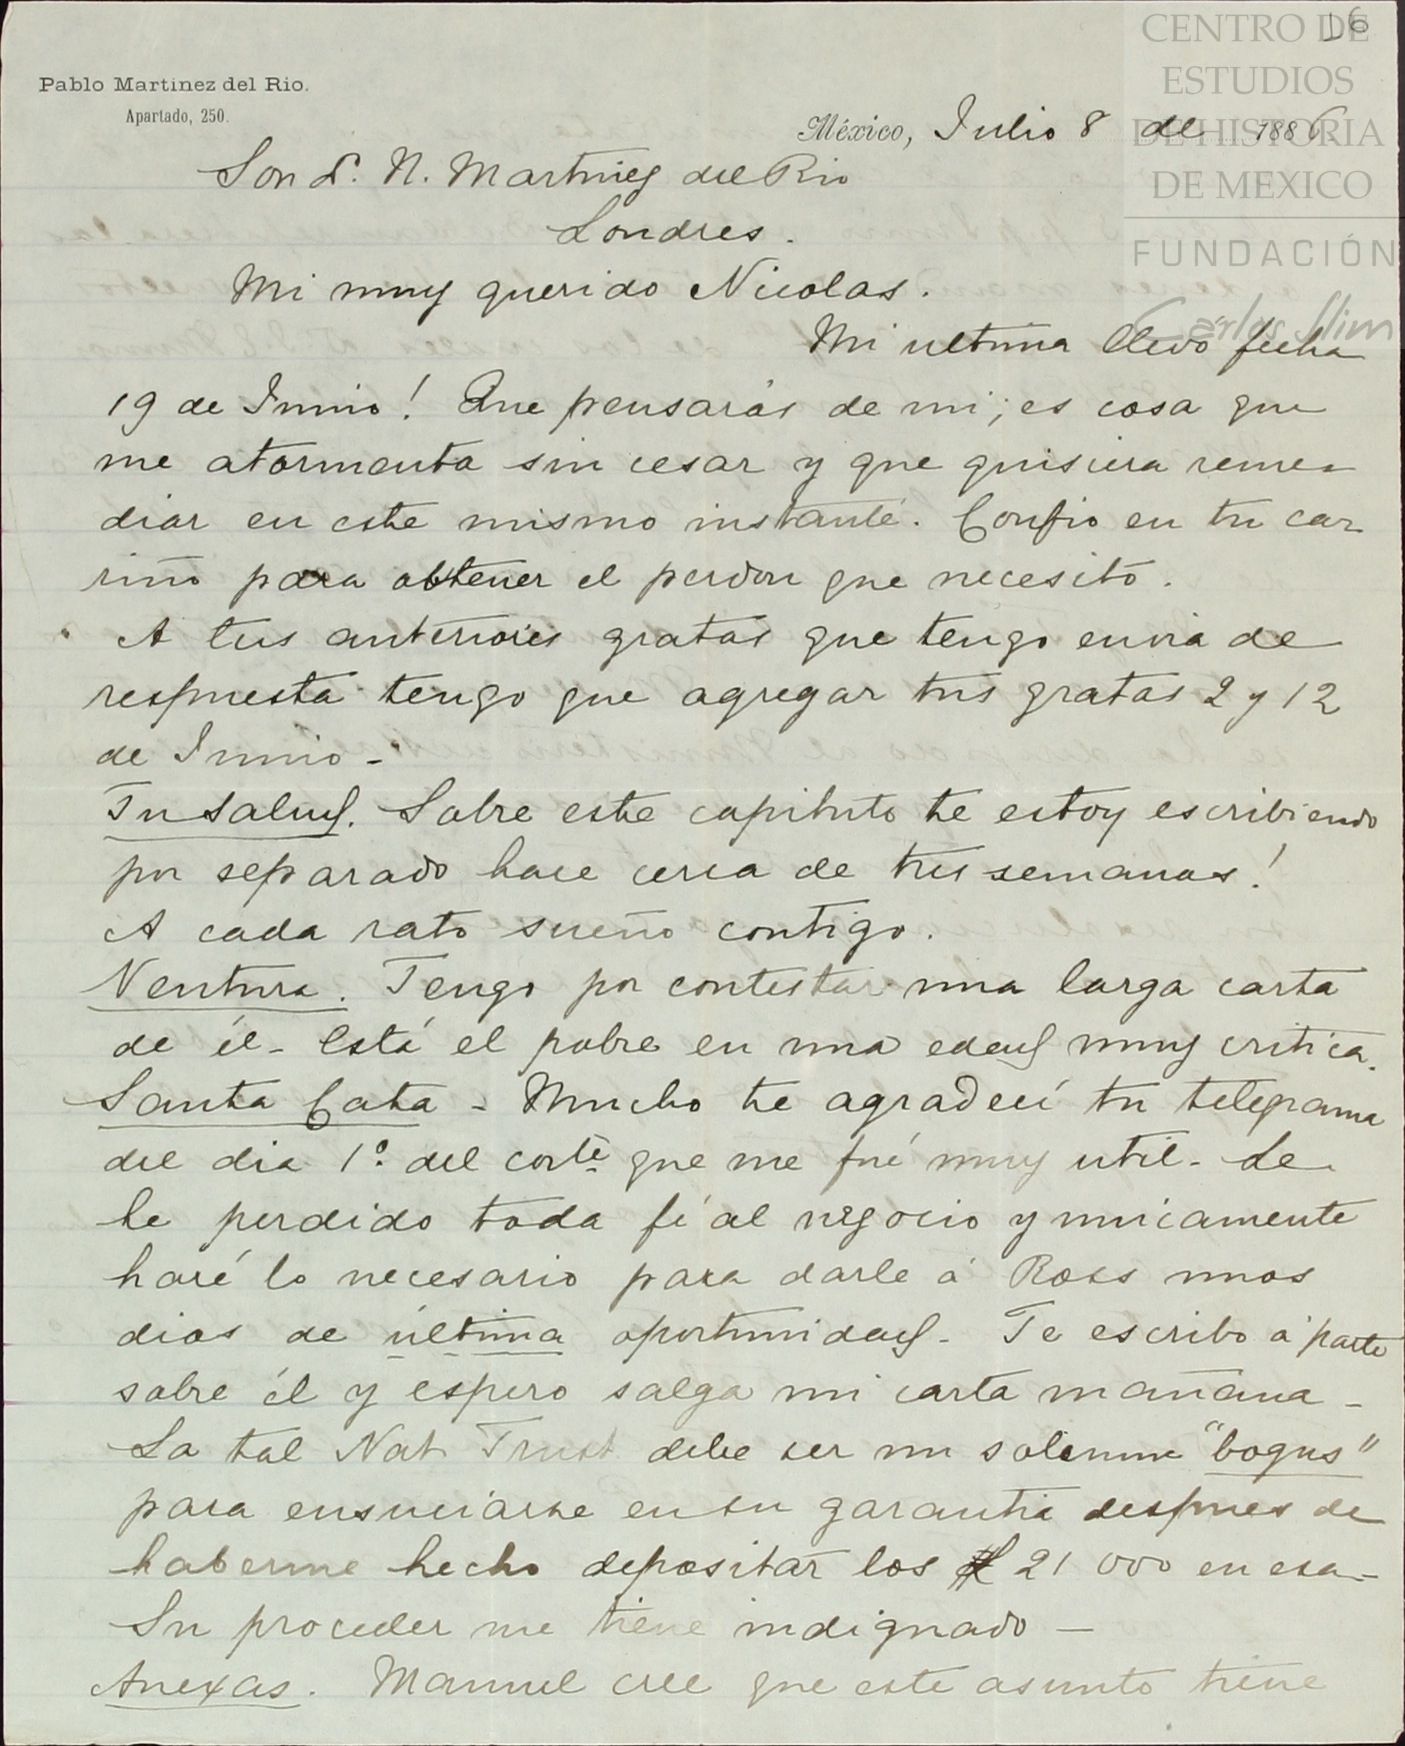 16
CENTRO DE
ESTUDIOS
DE HISTORIA
DE MEXICO
FUNDACIÓN
Carlos Slim
Pablo Martinez del Rio.
Apartado, 250.
México, Julio 8 de 1886
Sor D. N. Martinez del Rio
Londres.
Mi muy querido Nicolas.
Mi ultima llevó fecha
19 de Junio! Que pensarás de mi; es cosa que
me atormenta sin cesar y que quisiera reme-
diar en este mismo instante. Confio en tu ca-
riño para obtener el perdon que necesito.
A tus anteriores gratas que tengo envia de
respuesta tengo que agregar tus gratas 2 y 12
de Junio -
Tu salud. Sobre este capitulo te estoy escribiendo
por separado hace cerca de tres semanas!
A cada rato sueño contigo.
Ventura. Tengo por contestar una larga carta
de él - Está el pobre en una edad muy critica.
Santa Cata - Mucho te agradecí tu telegrama
del dia 1º. del corte. que me fué muy util - Le
he perdido toda fé al negocio y unicamente
haré lo necesario para darle á Ross unos
dias de última oportunidad - Te escribo á parte
sobre él y espero salga mi carta mañana -
La tal Nat Trust debe ser un solemne "bogus"
para ensuciarse en su garantia despues de
haberme hecho depositar los £ 21 000 en esa -
Su proceder me tiene indignado -
Anexas. Manuel cree que este asunto tiene